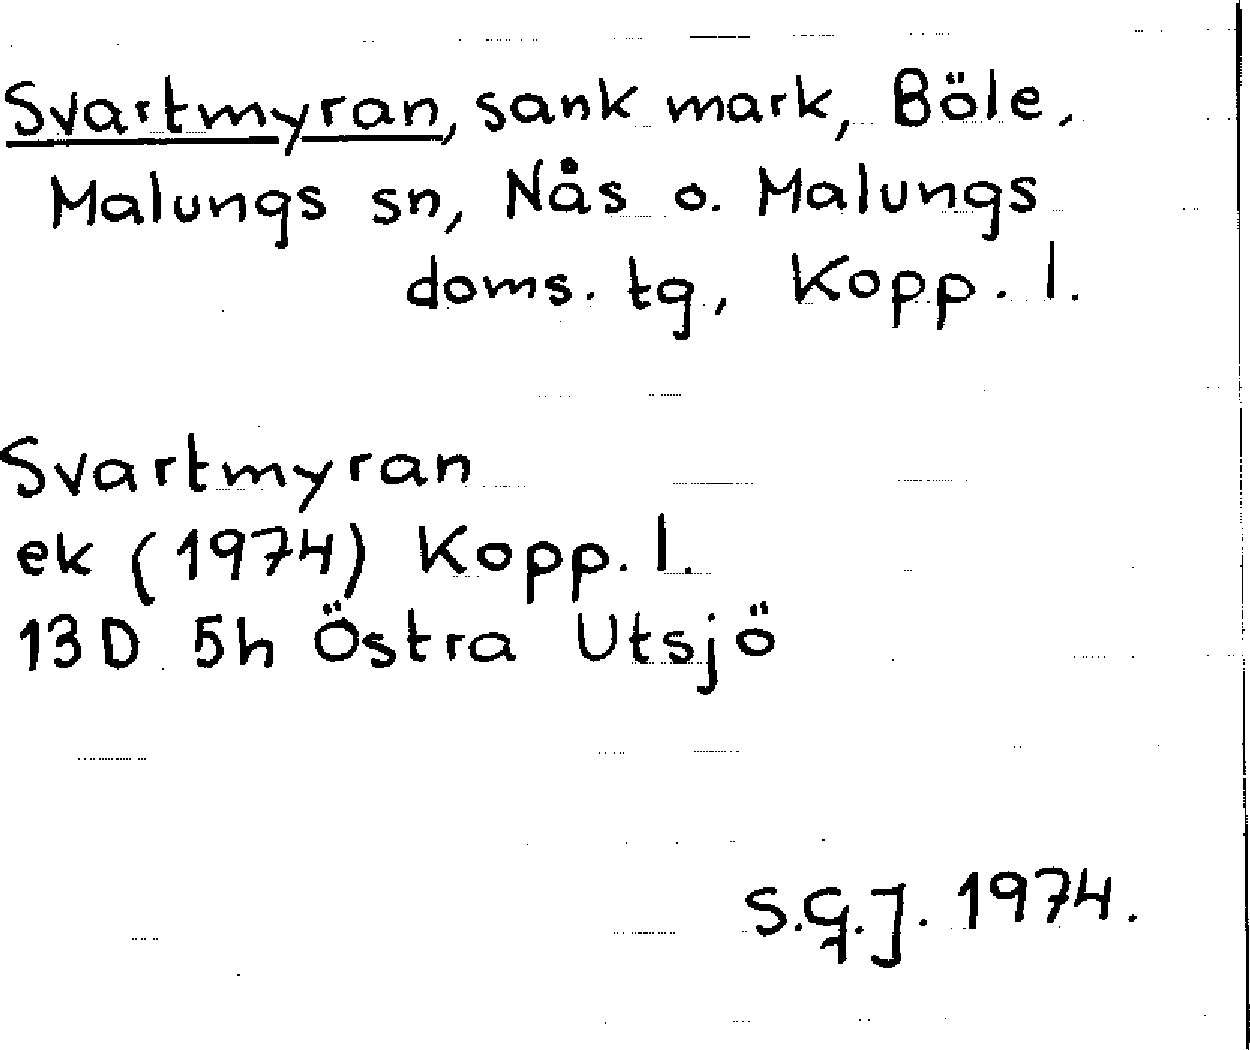 Svartmyran, sank mark, Böle,
Malungs sn, Nås o. Malungs
doms. tg, Kopp. l.
Svartmyran
ek (1974) Kopp. l.
13D 5h Östra Utsjö
S.G.J. 1974.